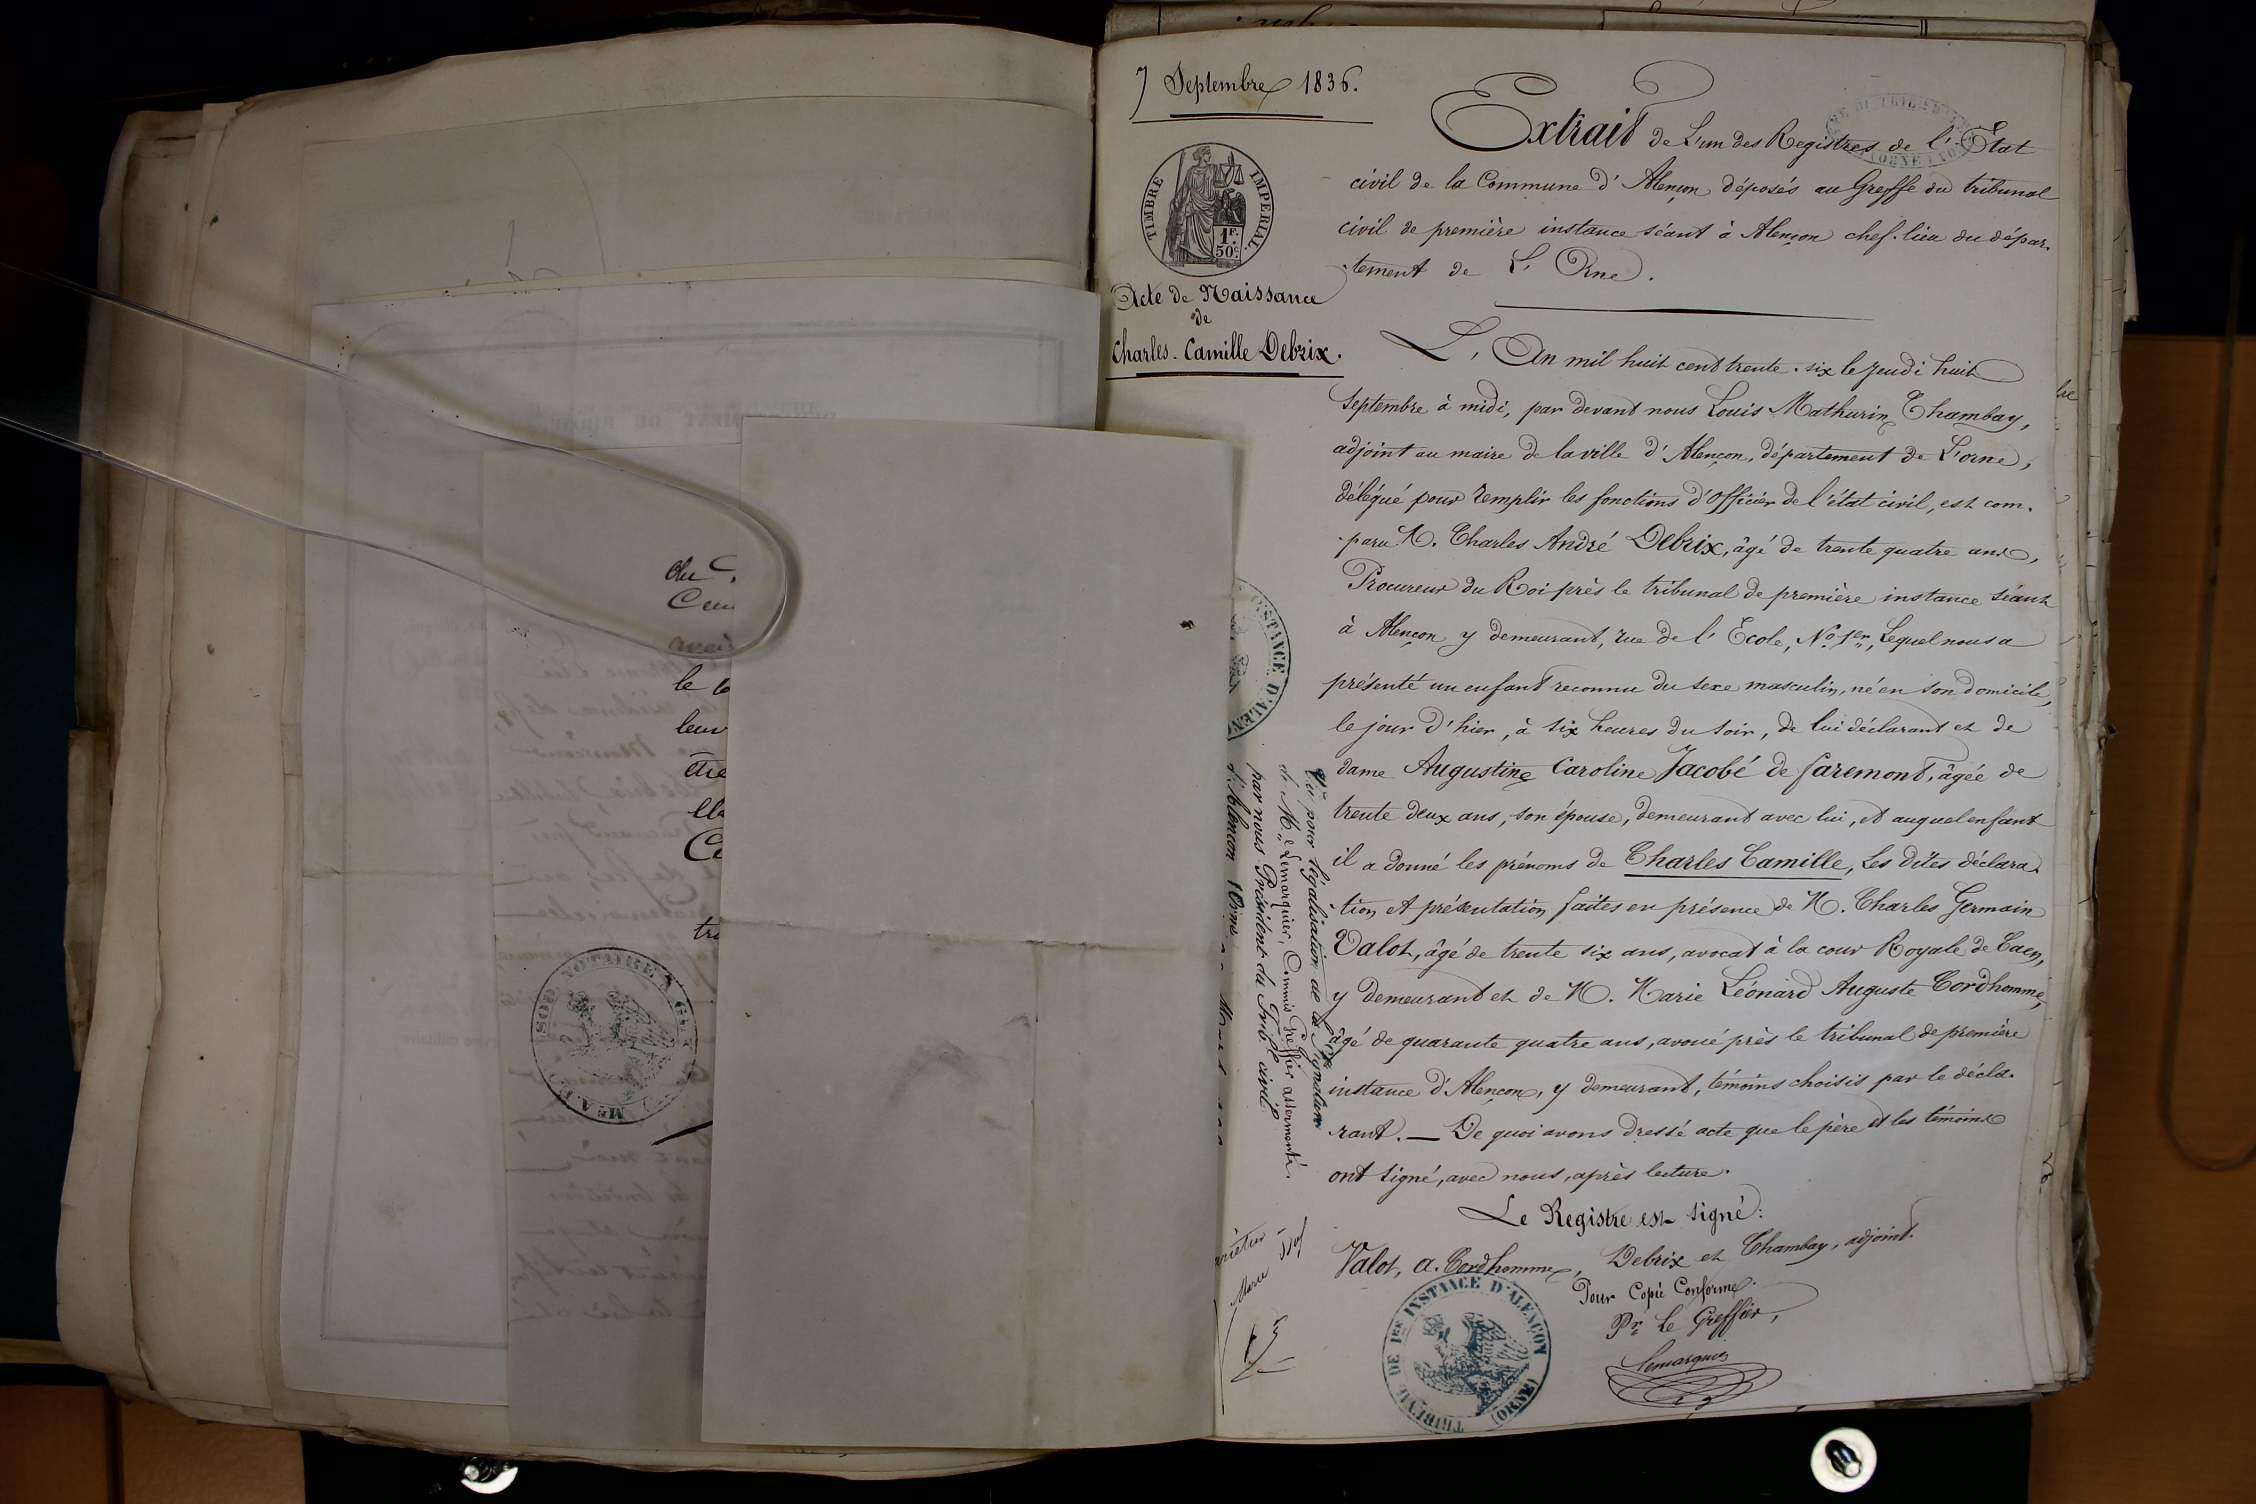 7 Septembre 1836.
TIMBRE IMPERIAL.
1F.
50c.
Acte de Naissance
de
Charles-Camille Debrix.
Extrait de L'un des Registres de l'Etat
civil de la Commune d'Alençon déposés au Greffe du tribunal
civil de première instance séant à Alençon chef-lieu du dépar-
-tement de L'Orne.
L'An mil huit cent trente-six le jeudi huit
Septembre à midi, par devant nous Louis Mathurin Chambay,
adjoint au maire de la ville d'Alençon, département de L'orne,
délégué pour remplir les fonctions d'officier de l'état civil, est com-
-paru M. Charles André Debrix, âgé de trente quatre ans,
Procureur du Roi près le tribunal de première instance séant
à Alençon y demeurant, rue de l'Ecole, No. 1er, Lequel nous a
présenté un enfant reconnu du sexe masculin, né en son domicile,
le jour d'hier, à six heures du soir, de lui déclarant et de
dame Augustine Caroline Jacobé de faremont, âgée de
trente deux ans, son épouse, demeurant avec lui, et auquel enfant
il a donné les prénoms de Charles Camille, Les dites déclara-
-tion et présentation faites en présence de M. Charles Germain
Valot, âgé de trente six ans, avocat à la cour Royale de Caen,
y demeurant et de M. Marie Léonard Auguste Cordhomme,
âgé de quarante quatre ans, avoué près le tribunal de première
instance d'Alençon, y demeurant, témoins choisis par le décla-
-rant. — De quoi avons dressé acte que le père et les témoins
ont signé, avec nous, après lecture.
Le Registre est signé:
Valot, A. Cordhomme, Debrix et Chambay, adjoint.
Pour Copie Conforme.
Pr Le Greffier,
Lemarquier
TRIBUNAL DE 1ERE INSTANCE D'ALENÇON
(ORNE)
Vu pour légalisation de la Signature
de Me Lemarquier, Commis Greffier assermenté.
par nous Président du Trib. civil
d'Alençon (Orne
INSTANCE D'ALEN
du
le
leur
être
NOTAIRE A